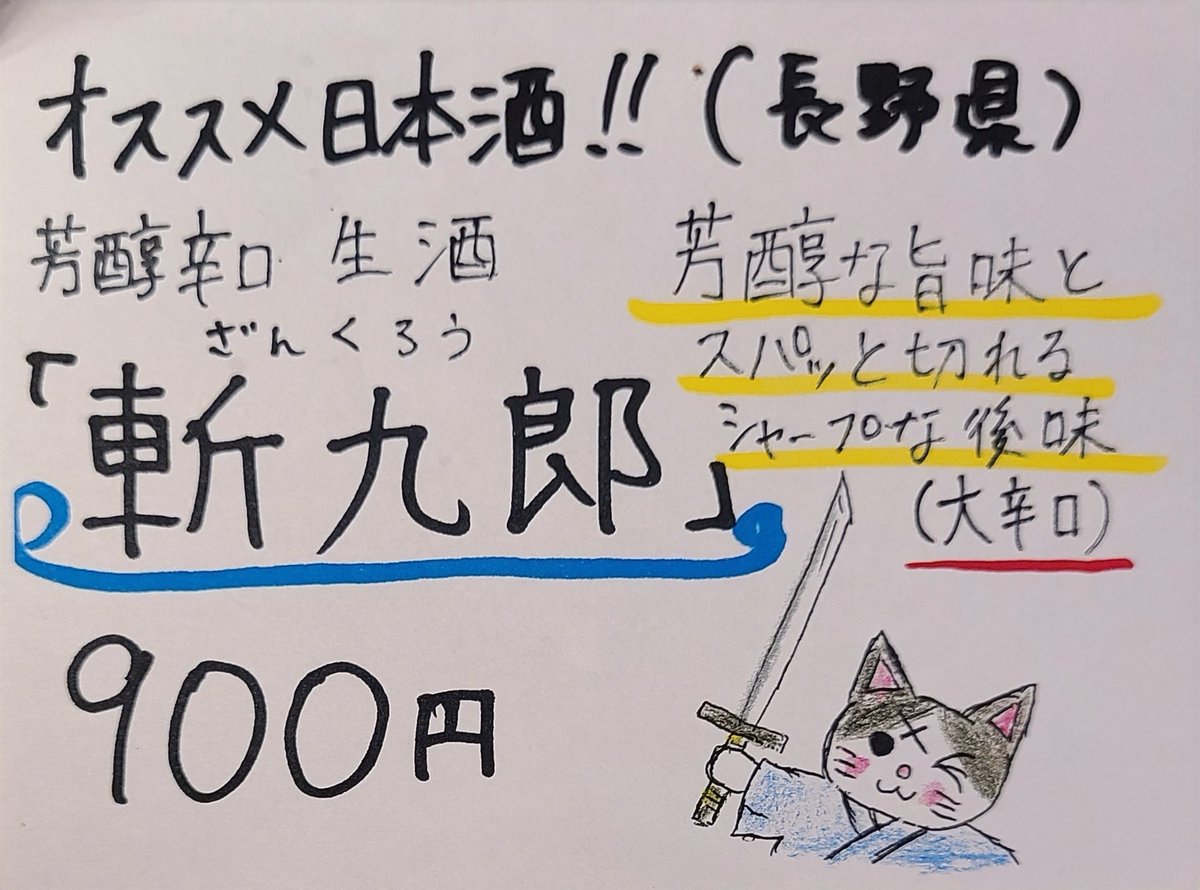 オススメ日本酒!!(長野県)
芳醇辛口 生酒
ざんくろう
「斬九郎」
900円
芳醇な旨味と
スパッと切れる
シャープな後味
(大辛口)